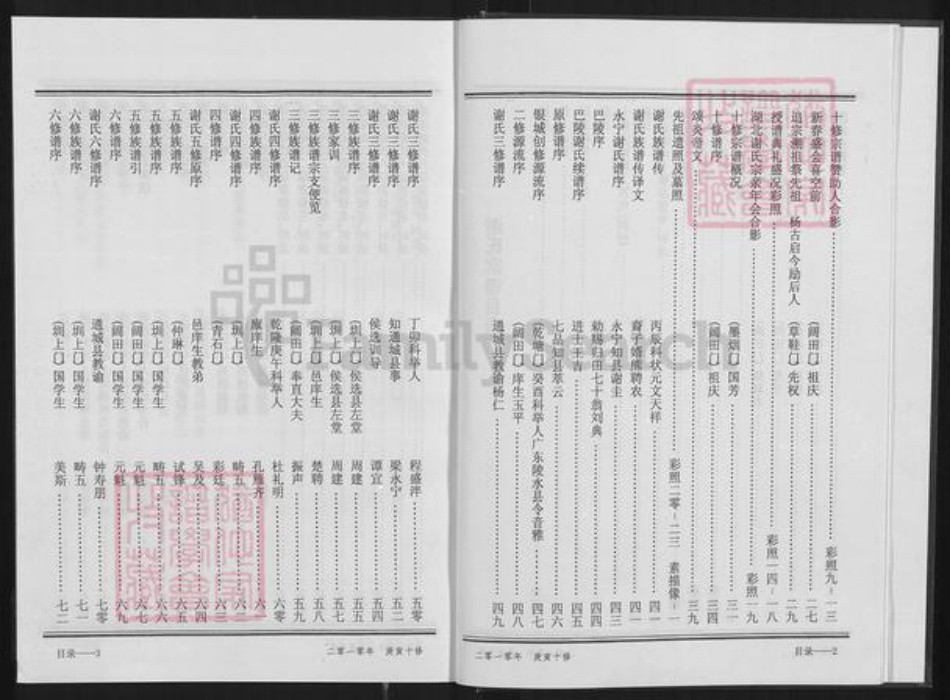 十修宗谱赞助人合影……彩照九－一三
新春盛会喜空前 (阔田〇) 祖庆……二七
追宗溯祖祭先祖 杨古启今励后人 (草鞋〇) 先权……二九
授谱典礼盛况彩照……彩照一四－一八
湖北谢氏宗亲年会合影……彩照一九
十修宗谱概况 (墨烟〇) 国芳……三一
十修谱序 (阔田〇) 祖庆……三四
颂炎帝文……三九
先祖遗照及墓照……彩照二零－二三 素描像－
谢氏族谱传 丙辰科状元文天祥……四一
谢氏族谱传译文 裔子婿熊聘农……四一
永宁谢氏谱序 永宁知县谢圭……四三
巴陵序 勅赐归田七十翁刘典……四四
巴陵谢氏续谱序 进士王吉……四五
原修谱序 七品知县萃云……四六
银城创修源流序 (乾塘〇) 癸酉科举人广东陵水县令音雅……四七
二修源流序 (阔田〇) 庠生玉平……四八
谢氏三修谱序 通城县教谕杨仁……四九
目录——2
二零一零年 庚寅十修
谢氏三修谱序 丁卯科举人 程盛泮……五零
谢氏三修谱序 知通城县事 梁永宁……五二
谢氏三修谱序 侯选训导 谭宜……五四
三修族谱序 (圳上〇) 侯选县左堂 周建……五五
三修家训 (圳上〇) 侯选县左堂 周建……五七
三修族谱宗支便览 (圳上〇) 邑庠生 楚聘……五八
三修族谱记 (阔田〇) 奉直大夫 振声……五九
谢氏四修谱序 乾隆庚午科举人 杜礼明……六零
四修族谱序 廪庠生 孔雁齐……六一
谢氏四修谱序 (圳上〇) 畴五
四修谱序 (青石〇) 彩廷……六三
谢氏五修原序 邑庠生教弟 吴及……六四
五修族谱序 (仲琳〇) 试锋……六五
五修族谱序 (圳上〇) 国学生 畴五……六六
五修族谱引 (阔田〇) 国学生 元魁……六七
六修谱序 (阔田〇) 国学生 元魁……六九
谢氏六修谱序 通城县教谕 钟寿朋……七零
六修族谱序 (圳上〇) 国学生 畴五……七一
六修谱序 (圳上〇) 国学生 美斯……七二
目录——3
二零一零年 庚寅十修
FamilySearch